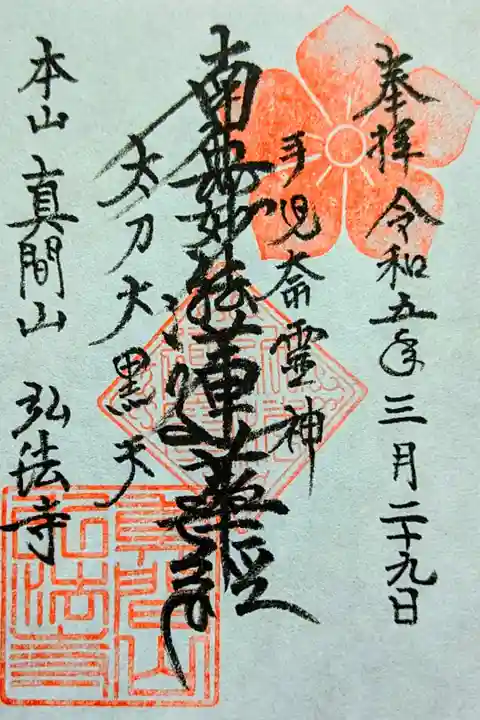 奉拝 令和五年三月二十九日
手児奈霊神
南無妙法蓮華経
太刀大黒天
本山 真間山 弘法寺
真間山弘法寺